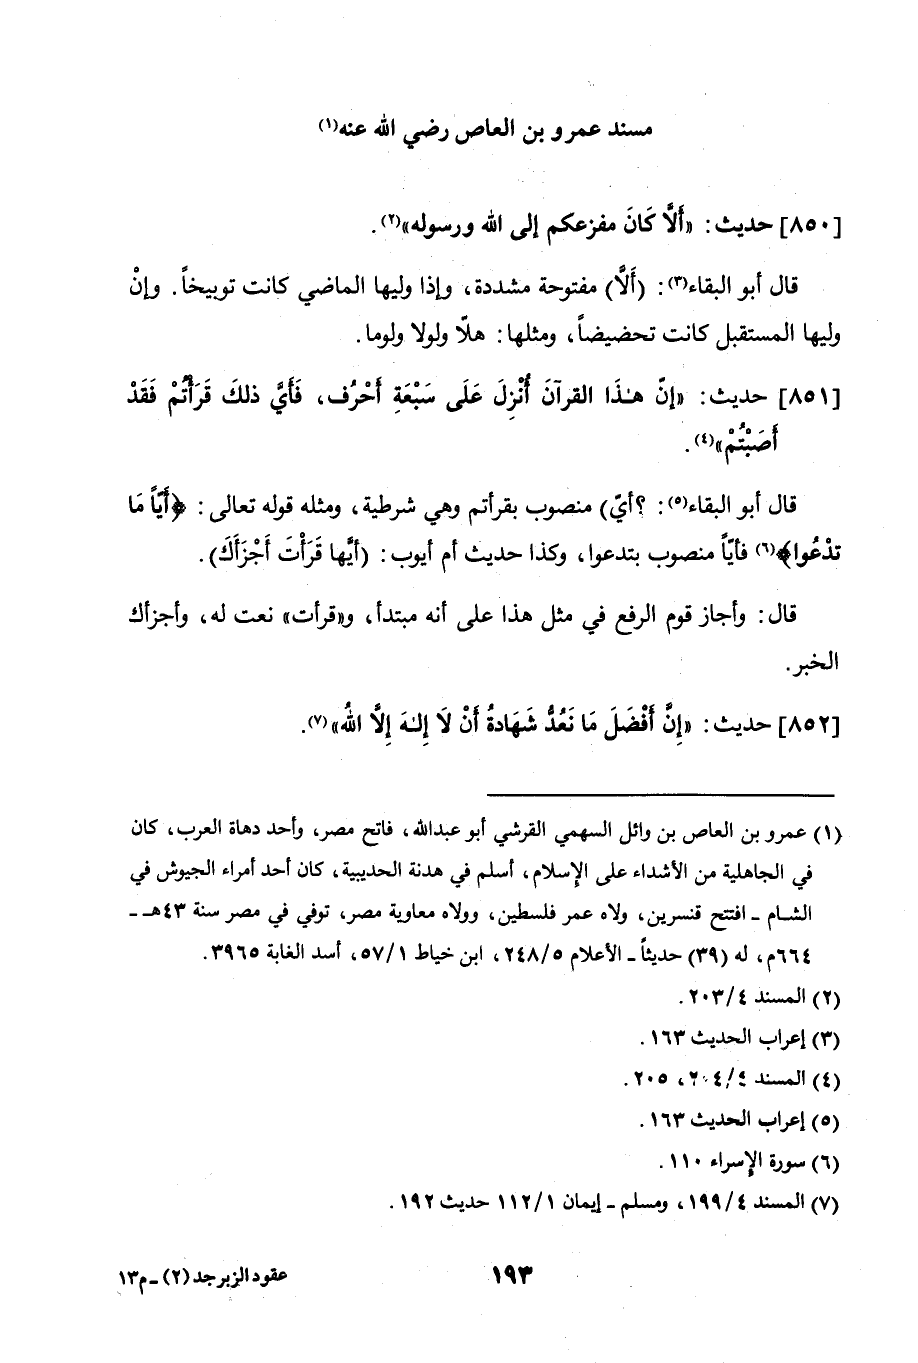 مسند عمرو بن العاص رضي الله عنه(١)
[٨٥٠] حديث: «أَلَّا كَانَ مفزعكم إلى الله ورسوله»(٢).
قال أبو البقاء(٣): (أَلَّا) مفتوحة مشددة، وإذا وليها الماضي كانت توبيخاً. وإنْ
وليها المستقبل كانت تحضيضاً، ومثلها: هلّا ولولا ولوما.
[٨٥١] حديث: «إنّ هـٰذَا القرآنَ أُنْزِلَ عَلَى سَبْعَةِ أَحْرُف، فَأَيَّ ذلكَ قَرَأْتُمْ فَقَدْ
أَصَبْتُمْ»(٤).
قال أبو البقاء(٥): ؟أيّ) منصوب بقرأتم وهي شرطية، ومثله قوله تعالى: ﴿أَيّاً مَا
تدْعُوا﴾(٦) فأيّاً منصوب بتدعوا، وكذا حديث أم أيوب: (أيَّها قَرَأْتَ أَجْزَأَكَ).
قال: وأجاز قوم الرفع في مثل هذا على أنه مبتدأ، و«قرأت» نعت له، وأجزأك
الخبر.
[٨٥٢] حديث: «إِنَّ أَفْضَلَ مَا نَعُدُّ شَهَادةُ أَنْ لَا إِلـٰهَ إِلَّا اللهُ»(٧).
(١) عمرو بن العاص بن وائل السهمي القرشي أبو عبدالله، فاتح مصر، وأحد دهاة العرب، كان
في الجاهلية من الأشداء على الإسلام، أسلم في هدنة الحديبية، كان أحد أمراء الجيوش في
الشام ـ افتتح قنسرين، ولاه عمر فلسطين، وولاه معاوية مصر، توفي في مصر سنة ٤٣هـ ـ
٦٦٤م، له (٣٩) حديثاً ـ الأعلام ٢٤٨/٥، ابن خياط ٥٧/١، أسد الغابة ٣٩٦٥.
(٢) المسند ٢٠٣/٤.
(٣) إعراب الحديث ١٦٣.
(٤) المسند ٢٠٤/٤، ٢٠٥.
(٥) إعراب الحديث ١٦٣.
(٦) سورة الإسراء ١١٠.
(٧) المسند ١٩٩/٤، ومسلم ـ إيمان ١١٢/١ حديث ١٩٢.
١٩٣
عقود الزبرجد (٢) ـ م١٣